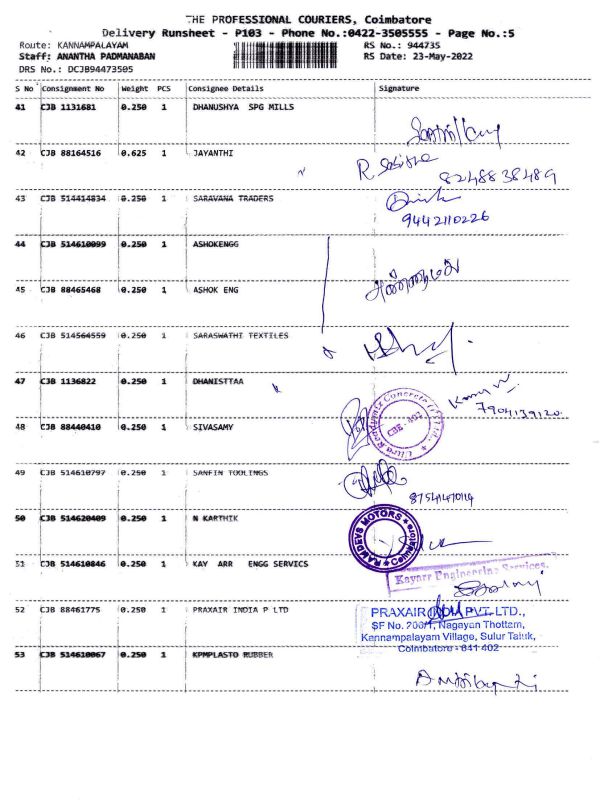 THE PROFESSIONAL COURIERS, Coimbatore
Delivery Runsheet - P103 - Phone No.:0422-3505555 - Page No.:5
Route: KANNAMPALAYAM RS No.: 944735
Staff: ANANTHA PADMANABAN RS Date: 23-May-2022
DRS No.: DCJB94473505
S No Consignment No Weight PCS Consignee Details Signature
41 CJB 1131681 0.250 1 DHANUSHYA SPG MILLS
42 CJB 88164516 0.625 1 JAYANTHI
8248838489
43 CJB 514414834 0.250 1 SARAVANA TRADERS
9442110226
44 CJB 514610099 0.250 1 ASHOKENGG
45 CJB 88465468 0.250 1 ASHOK ENG
46 CJB 514564559 0.250 1 SARASWATHI TEXTILES
47 CJB 1136822 0.250 1 DHANISTTAA
7904139120
48 CJB 88440410 0.250 1 SIVASAMY
CBE - 402
49 CJB 514610797 0.250 1 SANFIN TOOLINGS
50 CJB 514620409 0.250 1 N KARTHIK
RAMDEVS MOTORS
Coimbatore
51 CJB 514610846 0.250 1 KAY ARR ENGG SERVICS
Kayarr Engineering Services.
52 CJB 88461775 0.250 1 PRAXAIR INDIA P LTD
PRAXAIR INDIA PVT. LTD.,
SF No. 200/1, Nagayan Thottam,
Kannampalayam Village, Sulur Taluk,
Coimbatore - 641 402
53 CJB 514610067 0.250 1 KPMPLASTO RUBBER